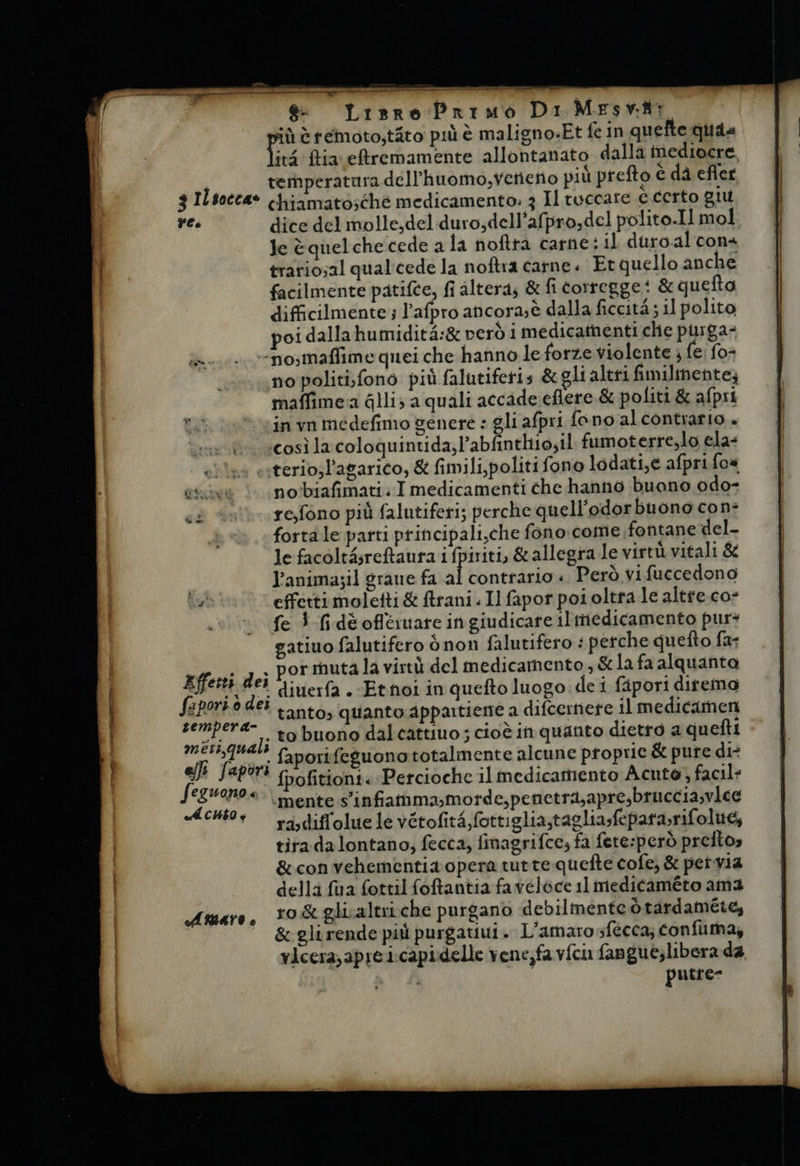 8 Libro Primo Di Mesve.
più è remoto,tãto più è maligno.Et se in queste qua-
litá stia estremamente allontanato dalla mediocre
temperatura dell'huomo,veneno più presto è da esser
3 Il tocca- chiamato;ché medicamento. 3 Il toccare è certo giu
re. dice del molle,del duro,dell'aspro,del polito.Il mol
le è quel che cede a la nostra carne: il duro al con-
trario;al qual cede la nostra carne. Et quello anche
facilmente patisce, si altera, & si corregge: & questo
difficilmente; l'aspro ancora,è dalla siccitá; il polito
poi dalla humiditá:& però i medicamenti che purga-
no,massime quei che hanno le forze violente, se so-
no politi,sono più salutiferi, & gli altri similmente;
massime a q̃lli, a quali accade essere & politi & aspri
in vn medesimo genere: gli aspri sono al contrario.
così la coloquintida,l'absinthio,il fumoterre,lo ela-
terio,l'agarico, & simili,politi sono lodati,e aspri so-
no biasimati. I medicamenti che hanno buono odo-
re,sono più salutiferi; perche quell'odor buono con-
forta le parti principali,che sono come fontane del-
le facoltá,restaura i spiriti, & allegra le virtù vitali &
l'anima;il graue fa al contrario. Però vi succedono
effetti molesti & strani. Il sapor poi oltra le altre co-
se si dè osseruare in giudicare il medicamento pur-
gatiuo salutifero ò non salutifero: perche questo sa-
por muta la virtù del medicamento, & la fa alquanto
Effetti dei diuersa. Et noi in questo luogo dei sapori diremo
sapori ò dei tanto, quanto appartiene a discernere il medicamen
tempera- to buono dal cattiuo; cioè in quanto dietro a questi
meti,quali sapori seguono totalmente alcune proprie & pure di-
essi sapori spositioni. Percioche il medicamento Acuto, facil-
seguono. mente s'infiamma,morde,penetra,apre,bruccia,vlce
Acuto. ra,dissolue le vẽtositá,sottiglia,taglia,separa,risolue,
tira da lontano, secca, smagrisce, fa sete:però presto,
& con vehementia opera tutte queste cose, & per via
della sua sottil sostantia fa veloce il medicamẽto ama
Amaro. ro & gli altri che purgano debilmente ò tardamẽte,
& gli rende più purgatiui. L'amaro secca, consuma,
vlcera,apre i capi delle vene,fa vscir sangue,libera da
putre-